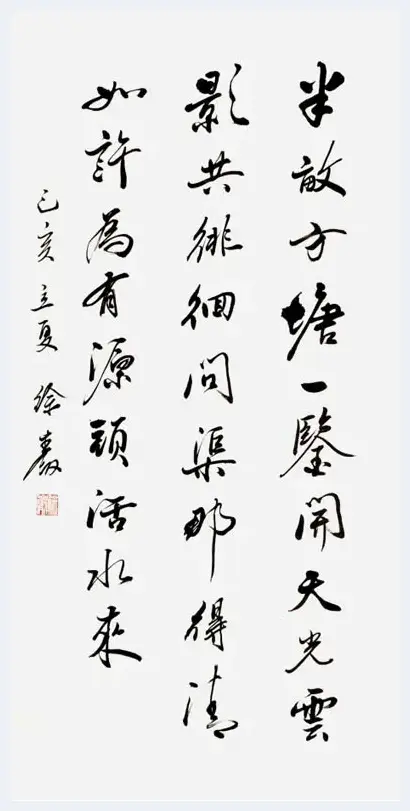 半畝方塘一鑒開天光雲
影共徘徊問渠那得清
如許為有源頭活水來
己亥立夏徐